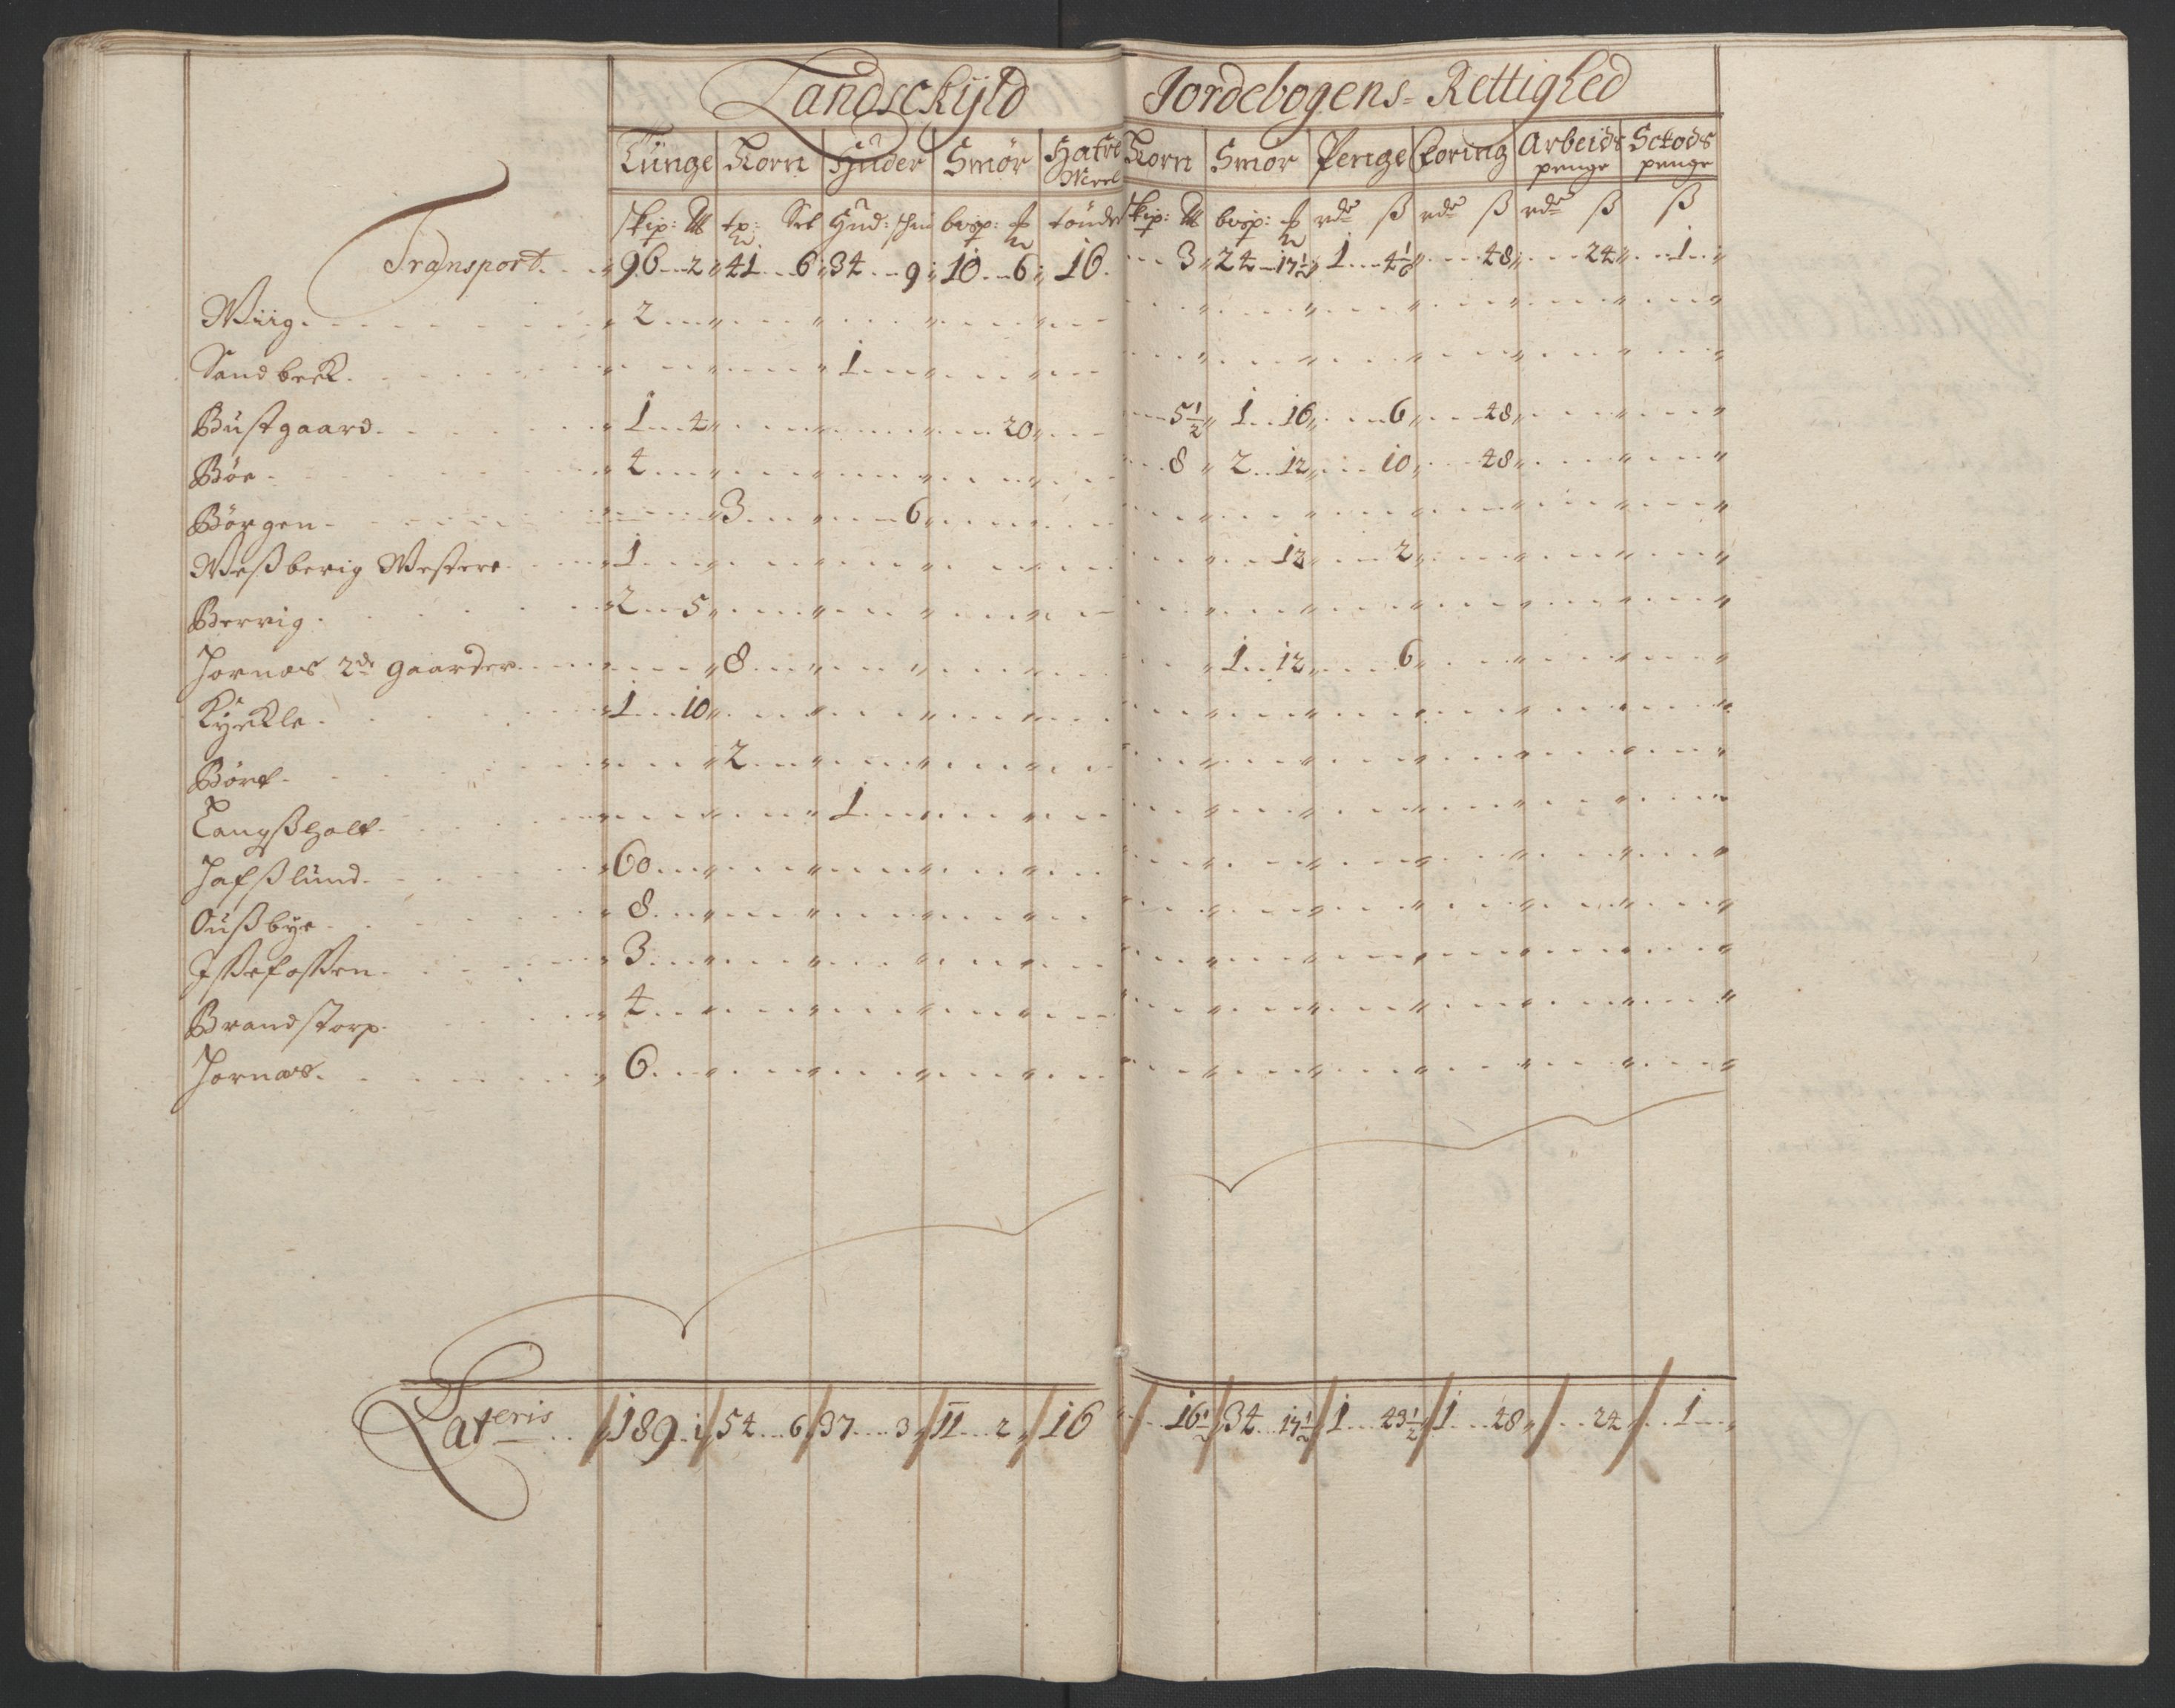 Landsckyld Jordebogens= Rettighed
Tünge Korn Huder Smör Hafre Meel Korn Smör Penge Foring Arbeids penge Sctods penge
skip: ℔ tp: Set Hud: skin bvsp: ℔ tönder skip: ℔ bvsp: ℔ rdr ß rdr ß rdr ß ß
Transport. 96 2 41 6 34 9 10 6 16. 3 24 17½ 1 4½ 48 24 1
Wiig. 2
Sandbeck. 1
Büstgaard. 1 4 20 5½ 1 16 6 48
Böe. 4 8 2 12 10 48
Börgen. 3 6
Weßberig Westere. 1 12 2
Bervig. 2 5
Jornæs 2de gaarder. 8 1 12 6
Kyekle. 1 10
Böre. 2
Langßholt. 1
Hafßlund. 60
Oußbye. 8
Issefossen. 3
Brandstorp. 4
Jornæs. 6
Lateris 189 1 54 6 37 3 11 2 16 16½ 34 17½ 1 49½ 1 48 24 1